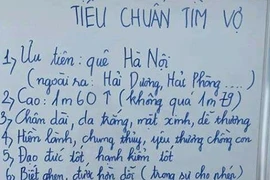 TIÊU CHUẨN TÌM VỢ
1, Ưu tiên: quê Hà Nội
(ngoài ra: Hải Dương, Hải Phòng ....)
2, Cao: 1m60 ↑ (không quá 1m
3, Chân dài, da trắng, mặt xinh, dễ thương
4, Hiền lành, chung thủy, yêu thương chồng con
5, Đạo đức tốt, hạnh kiểm tốt
6, Biết ghen, được hờn dỗi (trong sự cho phép)